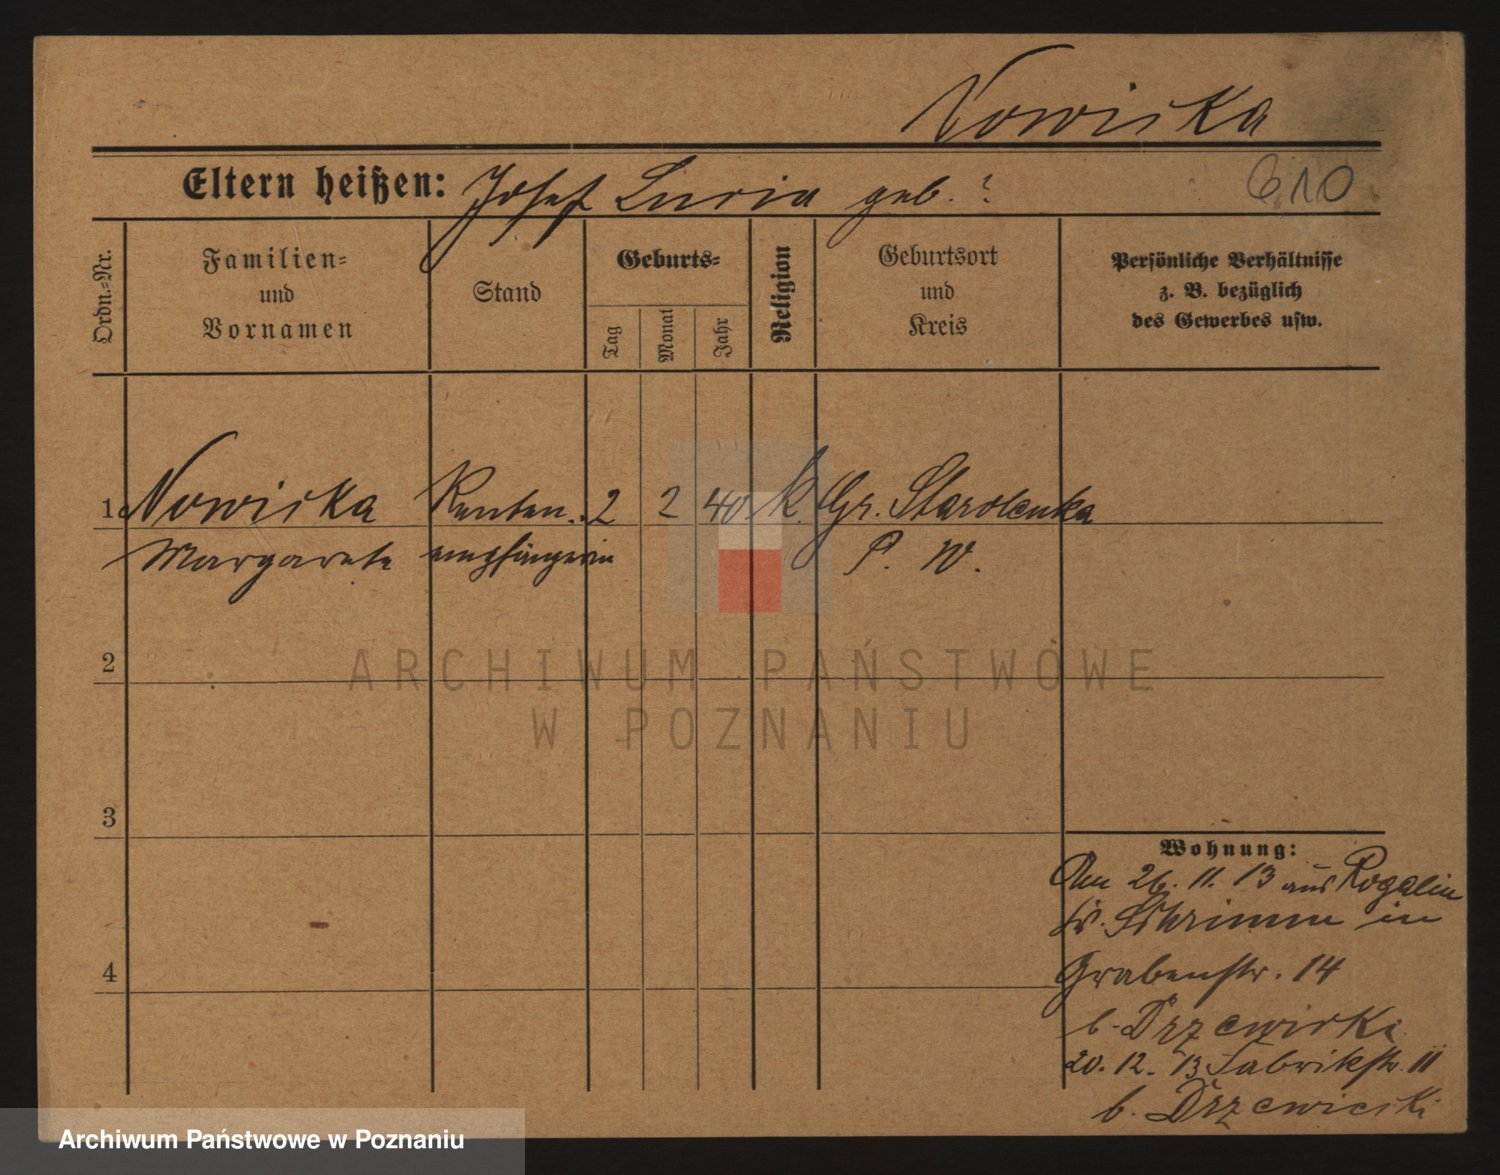 Nowicka
Eltern heißen: Josef Luria geb. ?
610
Ordn.-Nr.
Familien-
und
Vornamen
Stand
Geburts-
Tag
Monat
Jahr
Religion
Geburtsort
und
Kreis
Persönliche Verhältnisse
z. B. bezüglich
des Gewerbes usw.
1 Nowicka Renten- 2 2 40 k. Gr. Starolenka
Margarete empfängerin P. W.
2
3
4
Wohnung:
Am 26. 11. 13 aus Rogalin
Kr. Schrimm in
Grabenstr. 14
b. Drzewicki
20. 12. 13 Fabrikstr. 11
b. Drzewiecki
ARCHIWUM PAŃSTWOWE
W POZNANIU
Archiwum Państwowe w Poznaniu